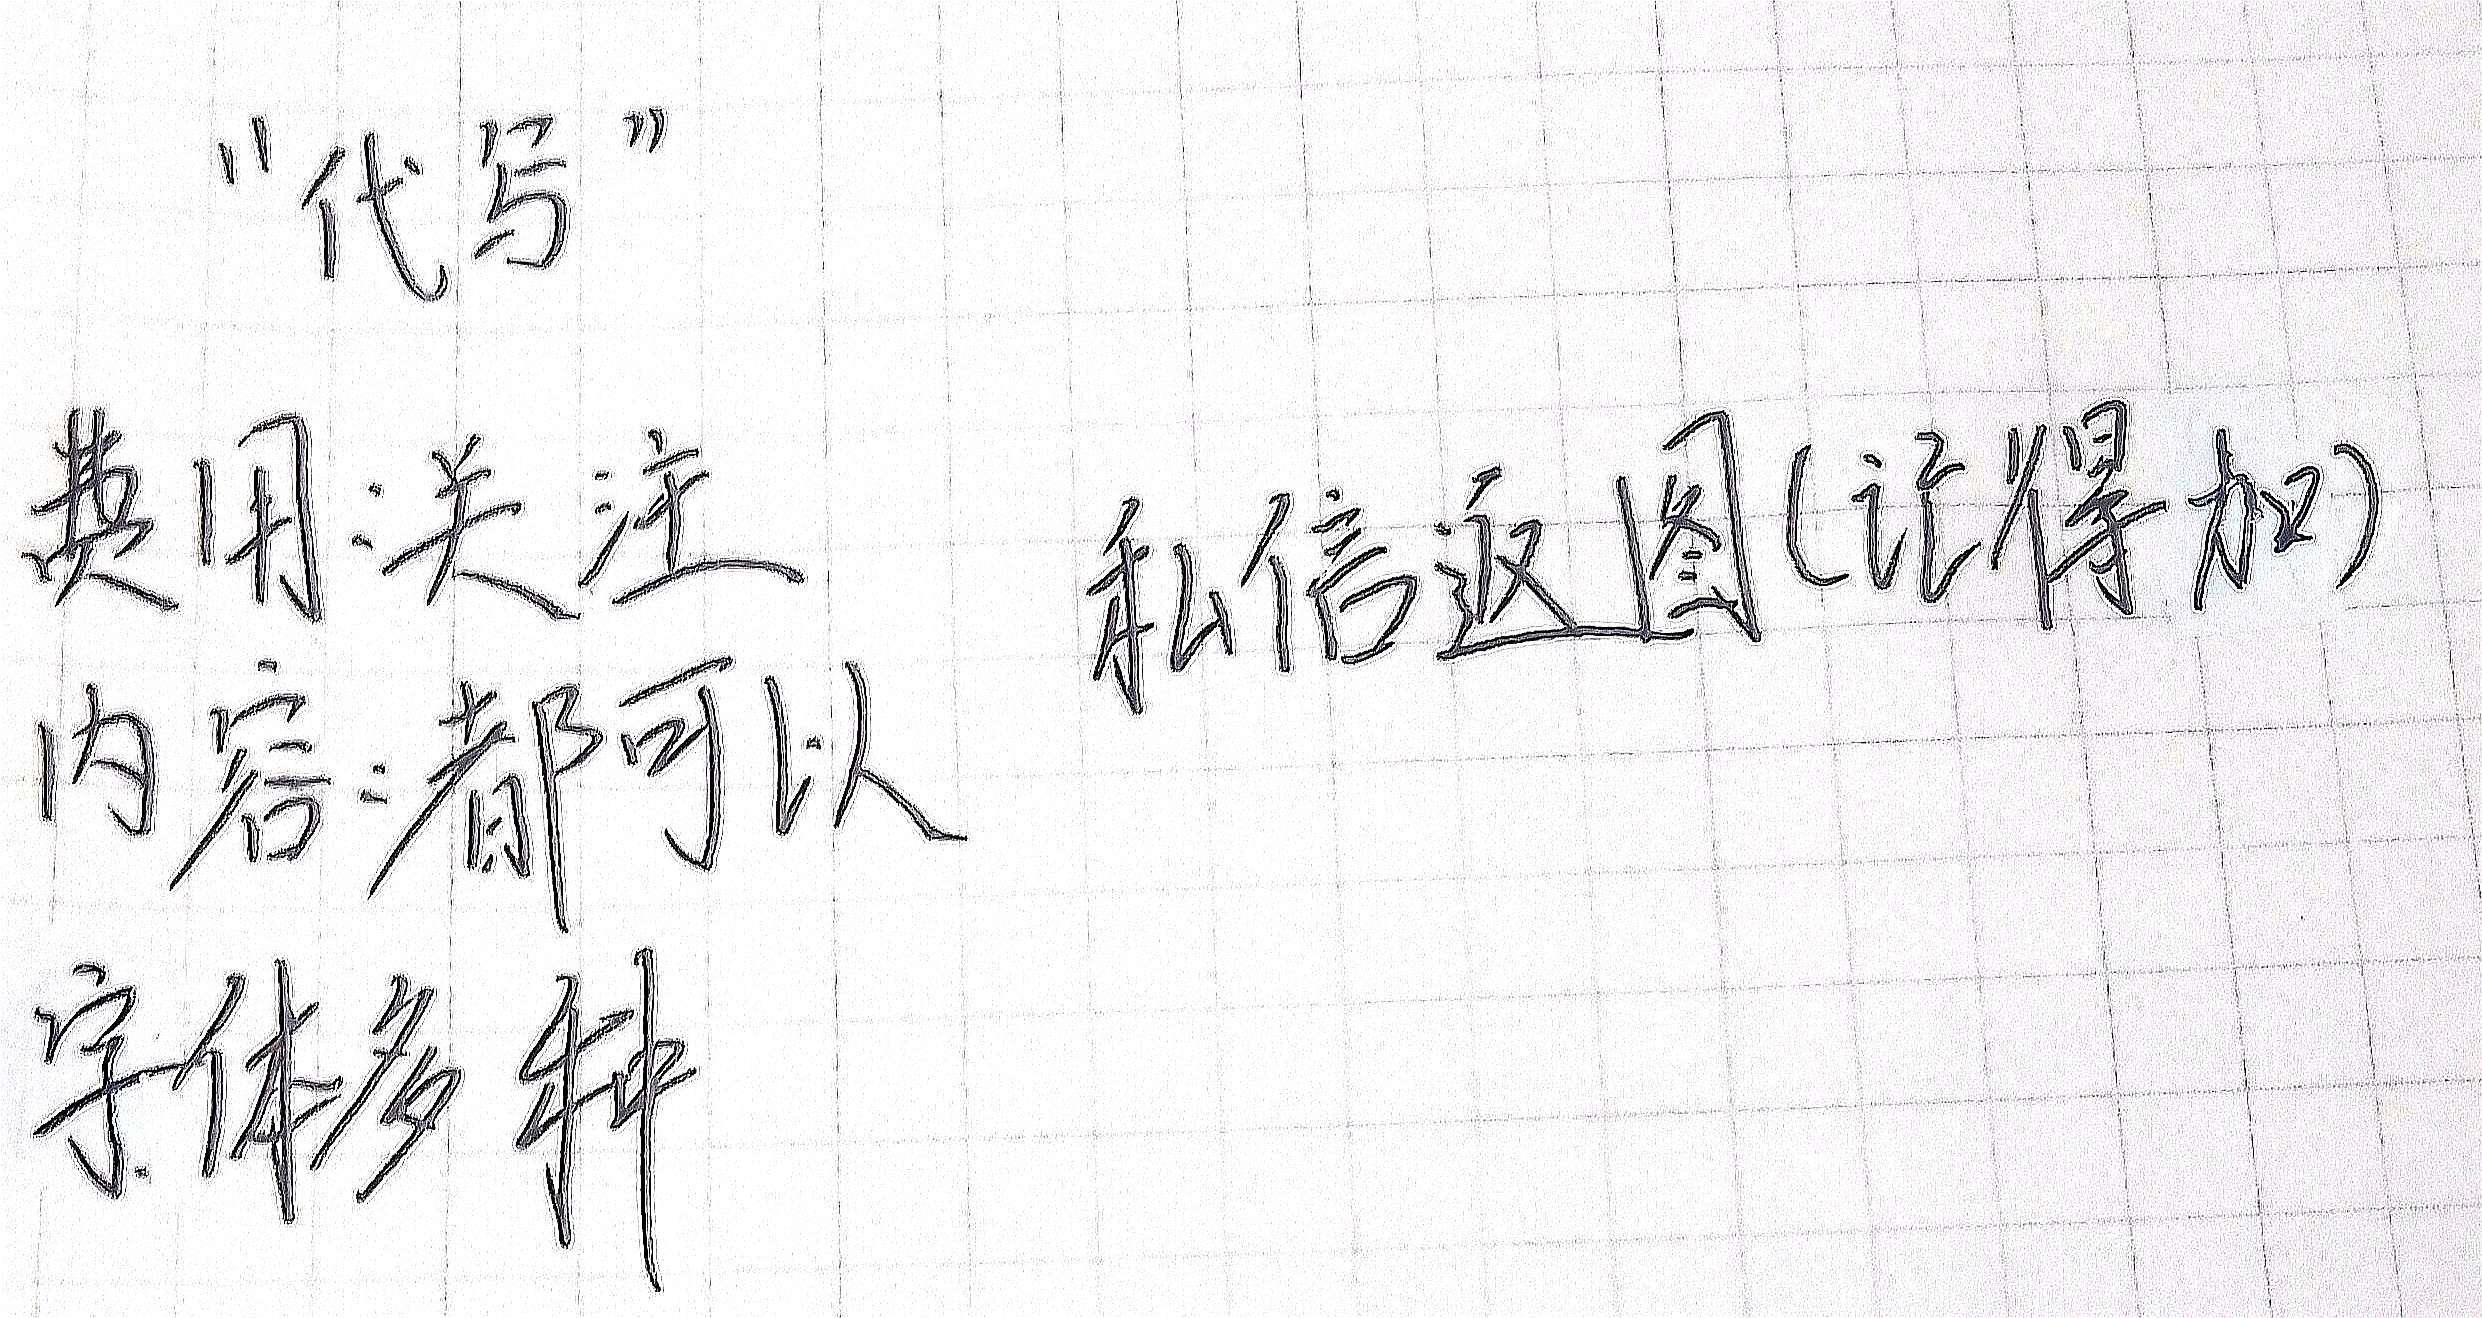 “代写”
费用:关注
内容:都可以
字体多种
私信返图(记得加)